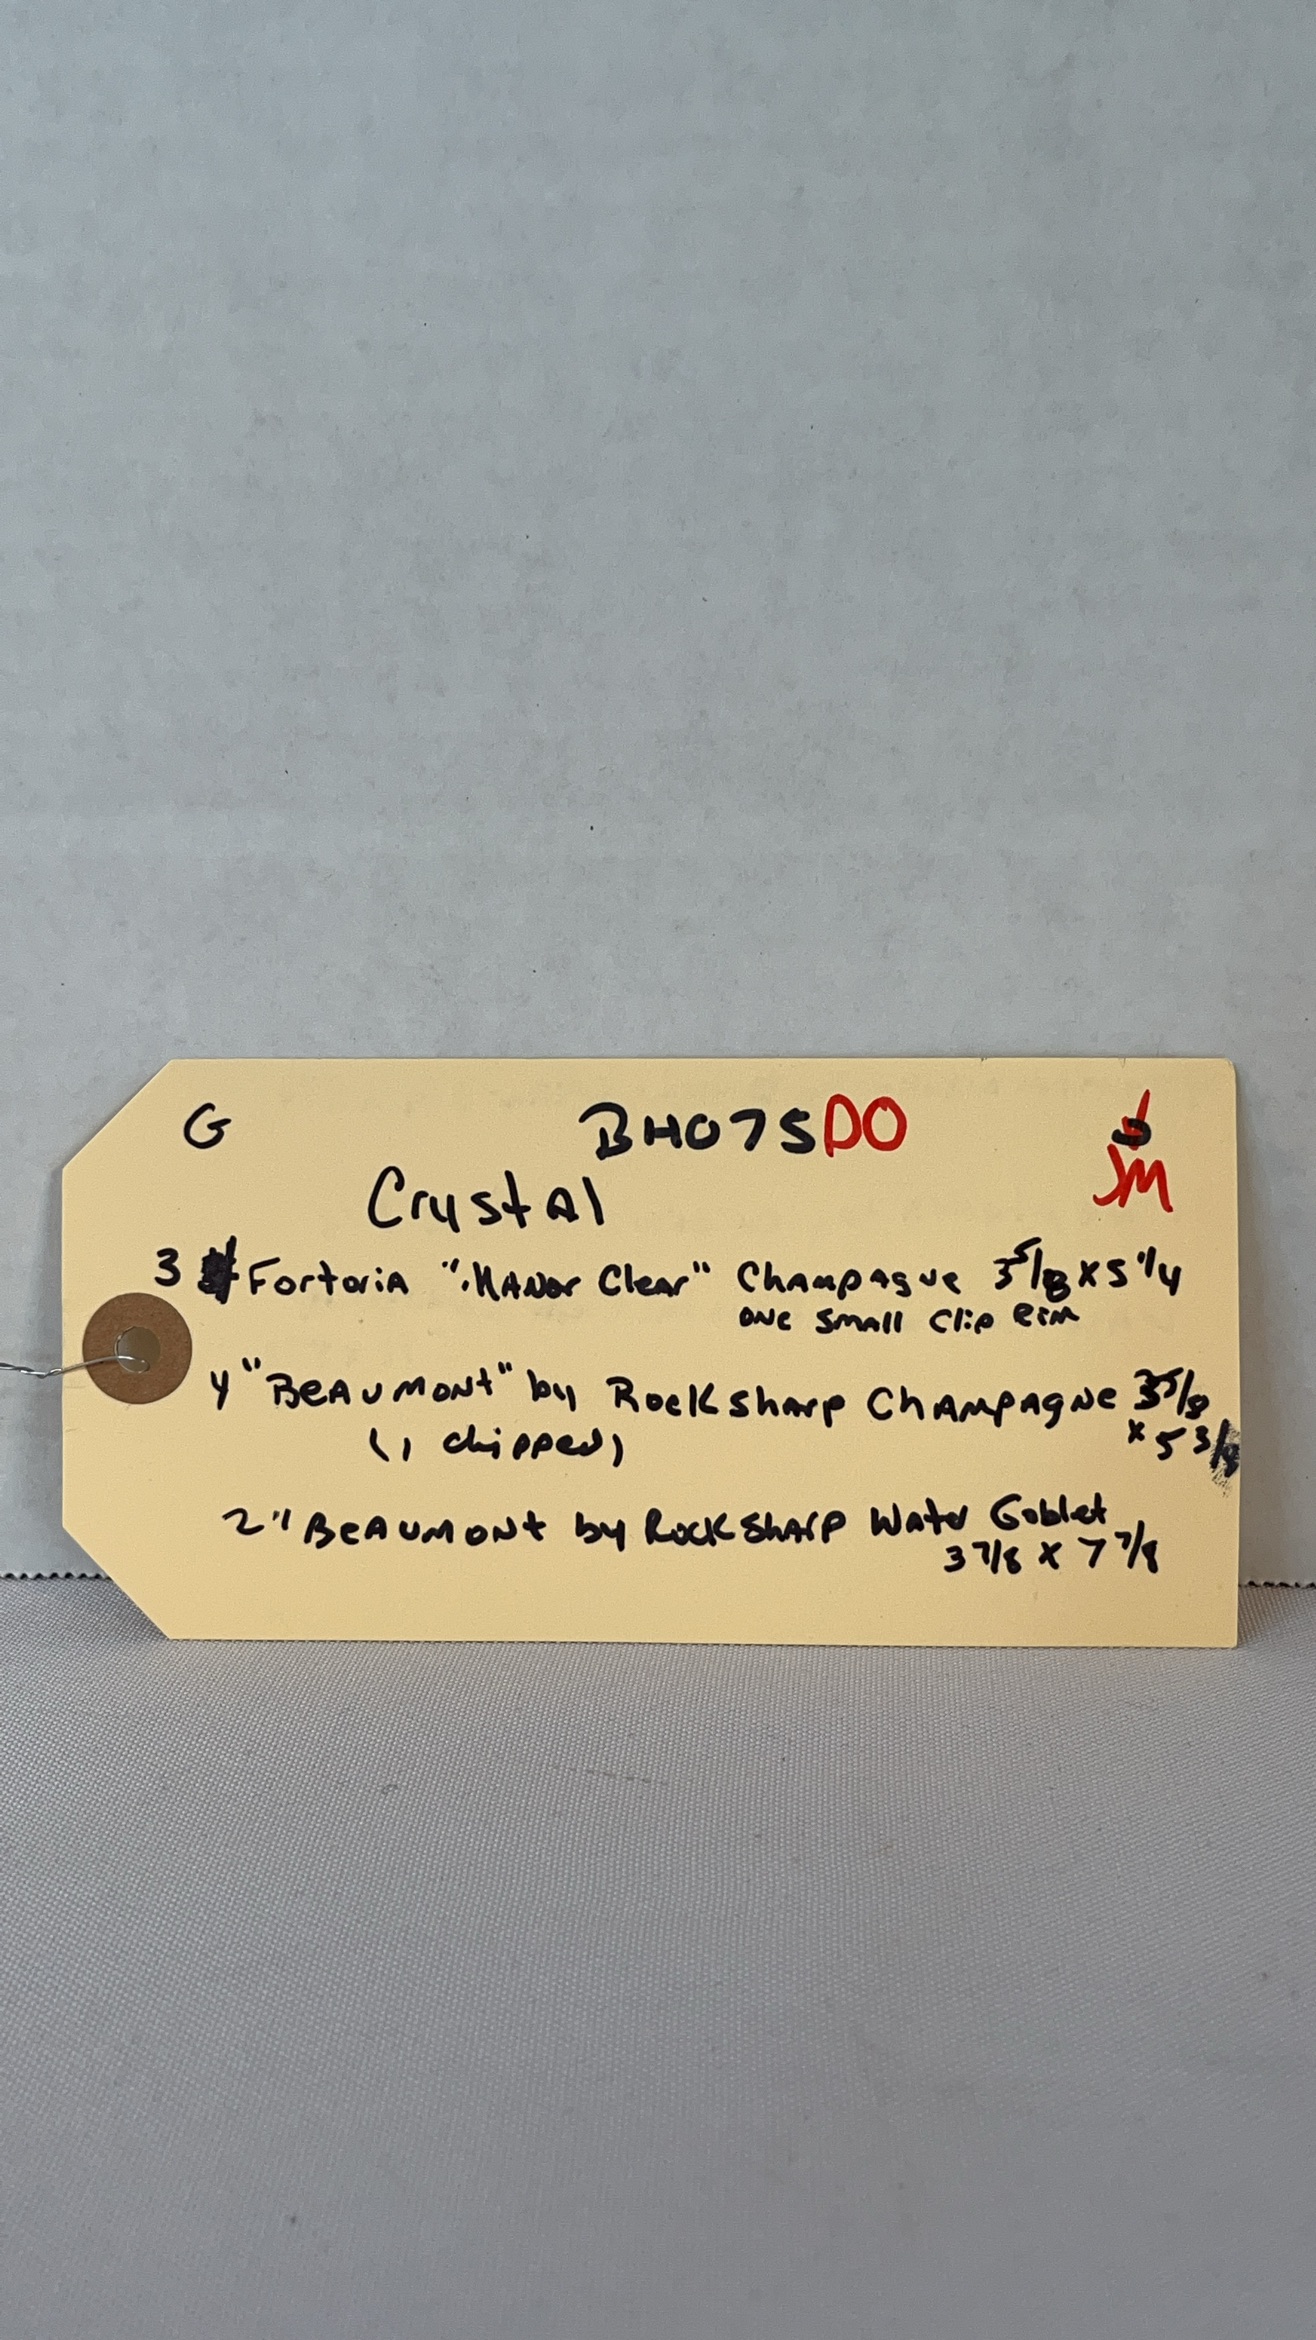 G BH075DO
Crystal JM
3 Fortoria "Manor Clear" Champagne 3 5/8 x 5 1/4
one small Clip Rim
4 "Beaumont" by Rock Sharp Champagne 3 5/8
(1 chipped) x 5 3/8
2 "Beaumont by Rock Sharp Water Goblet
3 7/8 x 7 7/8